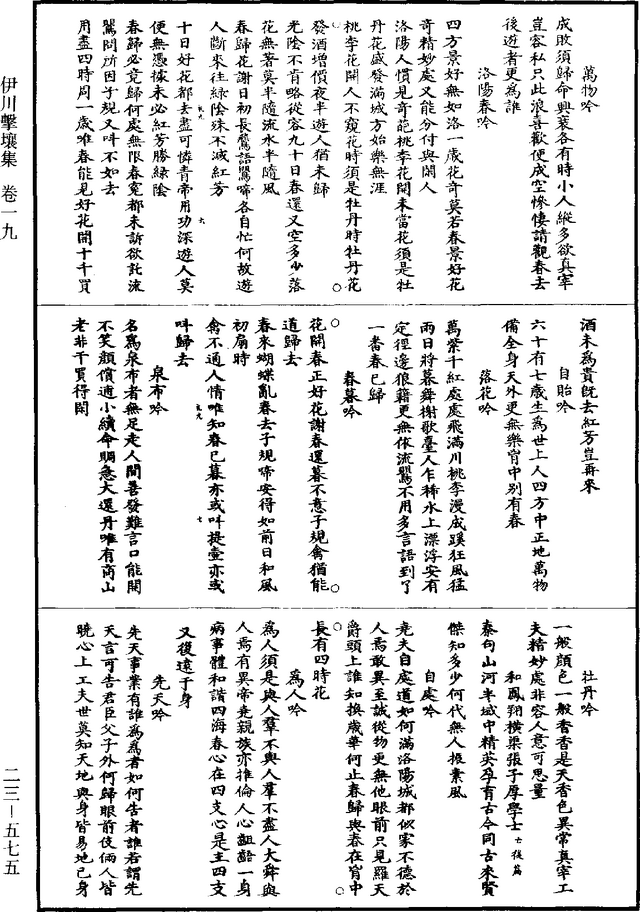 萬物吟
成敗須歸命興衰各有時小人縱多欲真宰
豈容私只此浪喜歡便成空慘悽請觀春去
後遊者更為誰
洛陽春吟
四方景好無如洛一歲花奇莫若春景好花
奇精妙處又能分付與閒人
洛陽人慣見奇葩桃李花開未當花須是牡
丹花盛發滿城方始樂無涯
桃李花開人不窺花時須是牡丹時牡丹花
發酒增價夜半遊人猶未歸
光陰不肯略從容九十日春還又空多少落
花無著莫半隨流水半隨風
春歸花謝日初長鸎語鸎啼各自忙何故遊
人斷來往綠陰殊不減紅芳
十日好花都去盡可憐青帝用功深遊人莫
便無憑據未必紅芳勝綠陰
春歸必竟歸何處無限春寃都未訴欲託流
鸎問所因子規又叫不如去
用盡四時周一歲唯春能見好花開十千買
酒未為貴旣去紅芳豈再來
自貽吟
六十有七歲生為世上人四方中正地萬物
備全身天外更無樂胷中別有春
落花吟
萬紫千紅處處飛滿川桃李漫成蹊狂風猛
雨日將暮舞榭歌臺人乍稀水上漂浮安有
定徑邊狼籍更無依流鸎不用多言語到了
一番春已歸
春暮吟
花開春正好花謝春還暮不意子規禽猶能
道歸去
春來蝴蝶亂春去子規啼安得如前日和風
初扇時
禽不通人情唯知春已暮亦或叫提壺亦或
叫歸去
泉布吟
名為泉布者無足走人間善發難言口能開
不笑顏償逋小續命賙急大還丹唯有商山
老非干買得閒
牡丹吟
一般顏色一般香香是天香色異常真宰工
夫精妙處非容人意可思量
和鳳翔橫渠張子厚學士亡後篇
秦甸山河半域中精英孕育古今同古來賢
傑知多少何代無人振素風
自處吟
堯夫自處道如何滿洛陽城都似家不德於
人焉敢異至誠從物更無他眼前只見羅天
爵頭上誰知換歲華何止春歸與春在胷中
長有四時花
為人吟
為人須是與人羣不與人羣不盡人大舜與
人焉有異帝堯親族亦推倫人心齟齬一身
病事體和諧四海春心在四支心是主四支
又復遠于身
先天吟
先天事業有誰為為者如何告者誰若謂先
天言可告君臣父子外何歸眼前伎倆人皆
曉心上工夫世莫知天地與身皆易地己身
伊川擊壤集 卷一九
二三—五七五